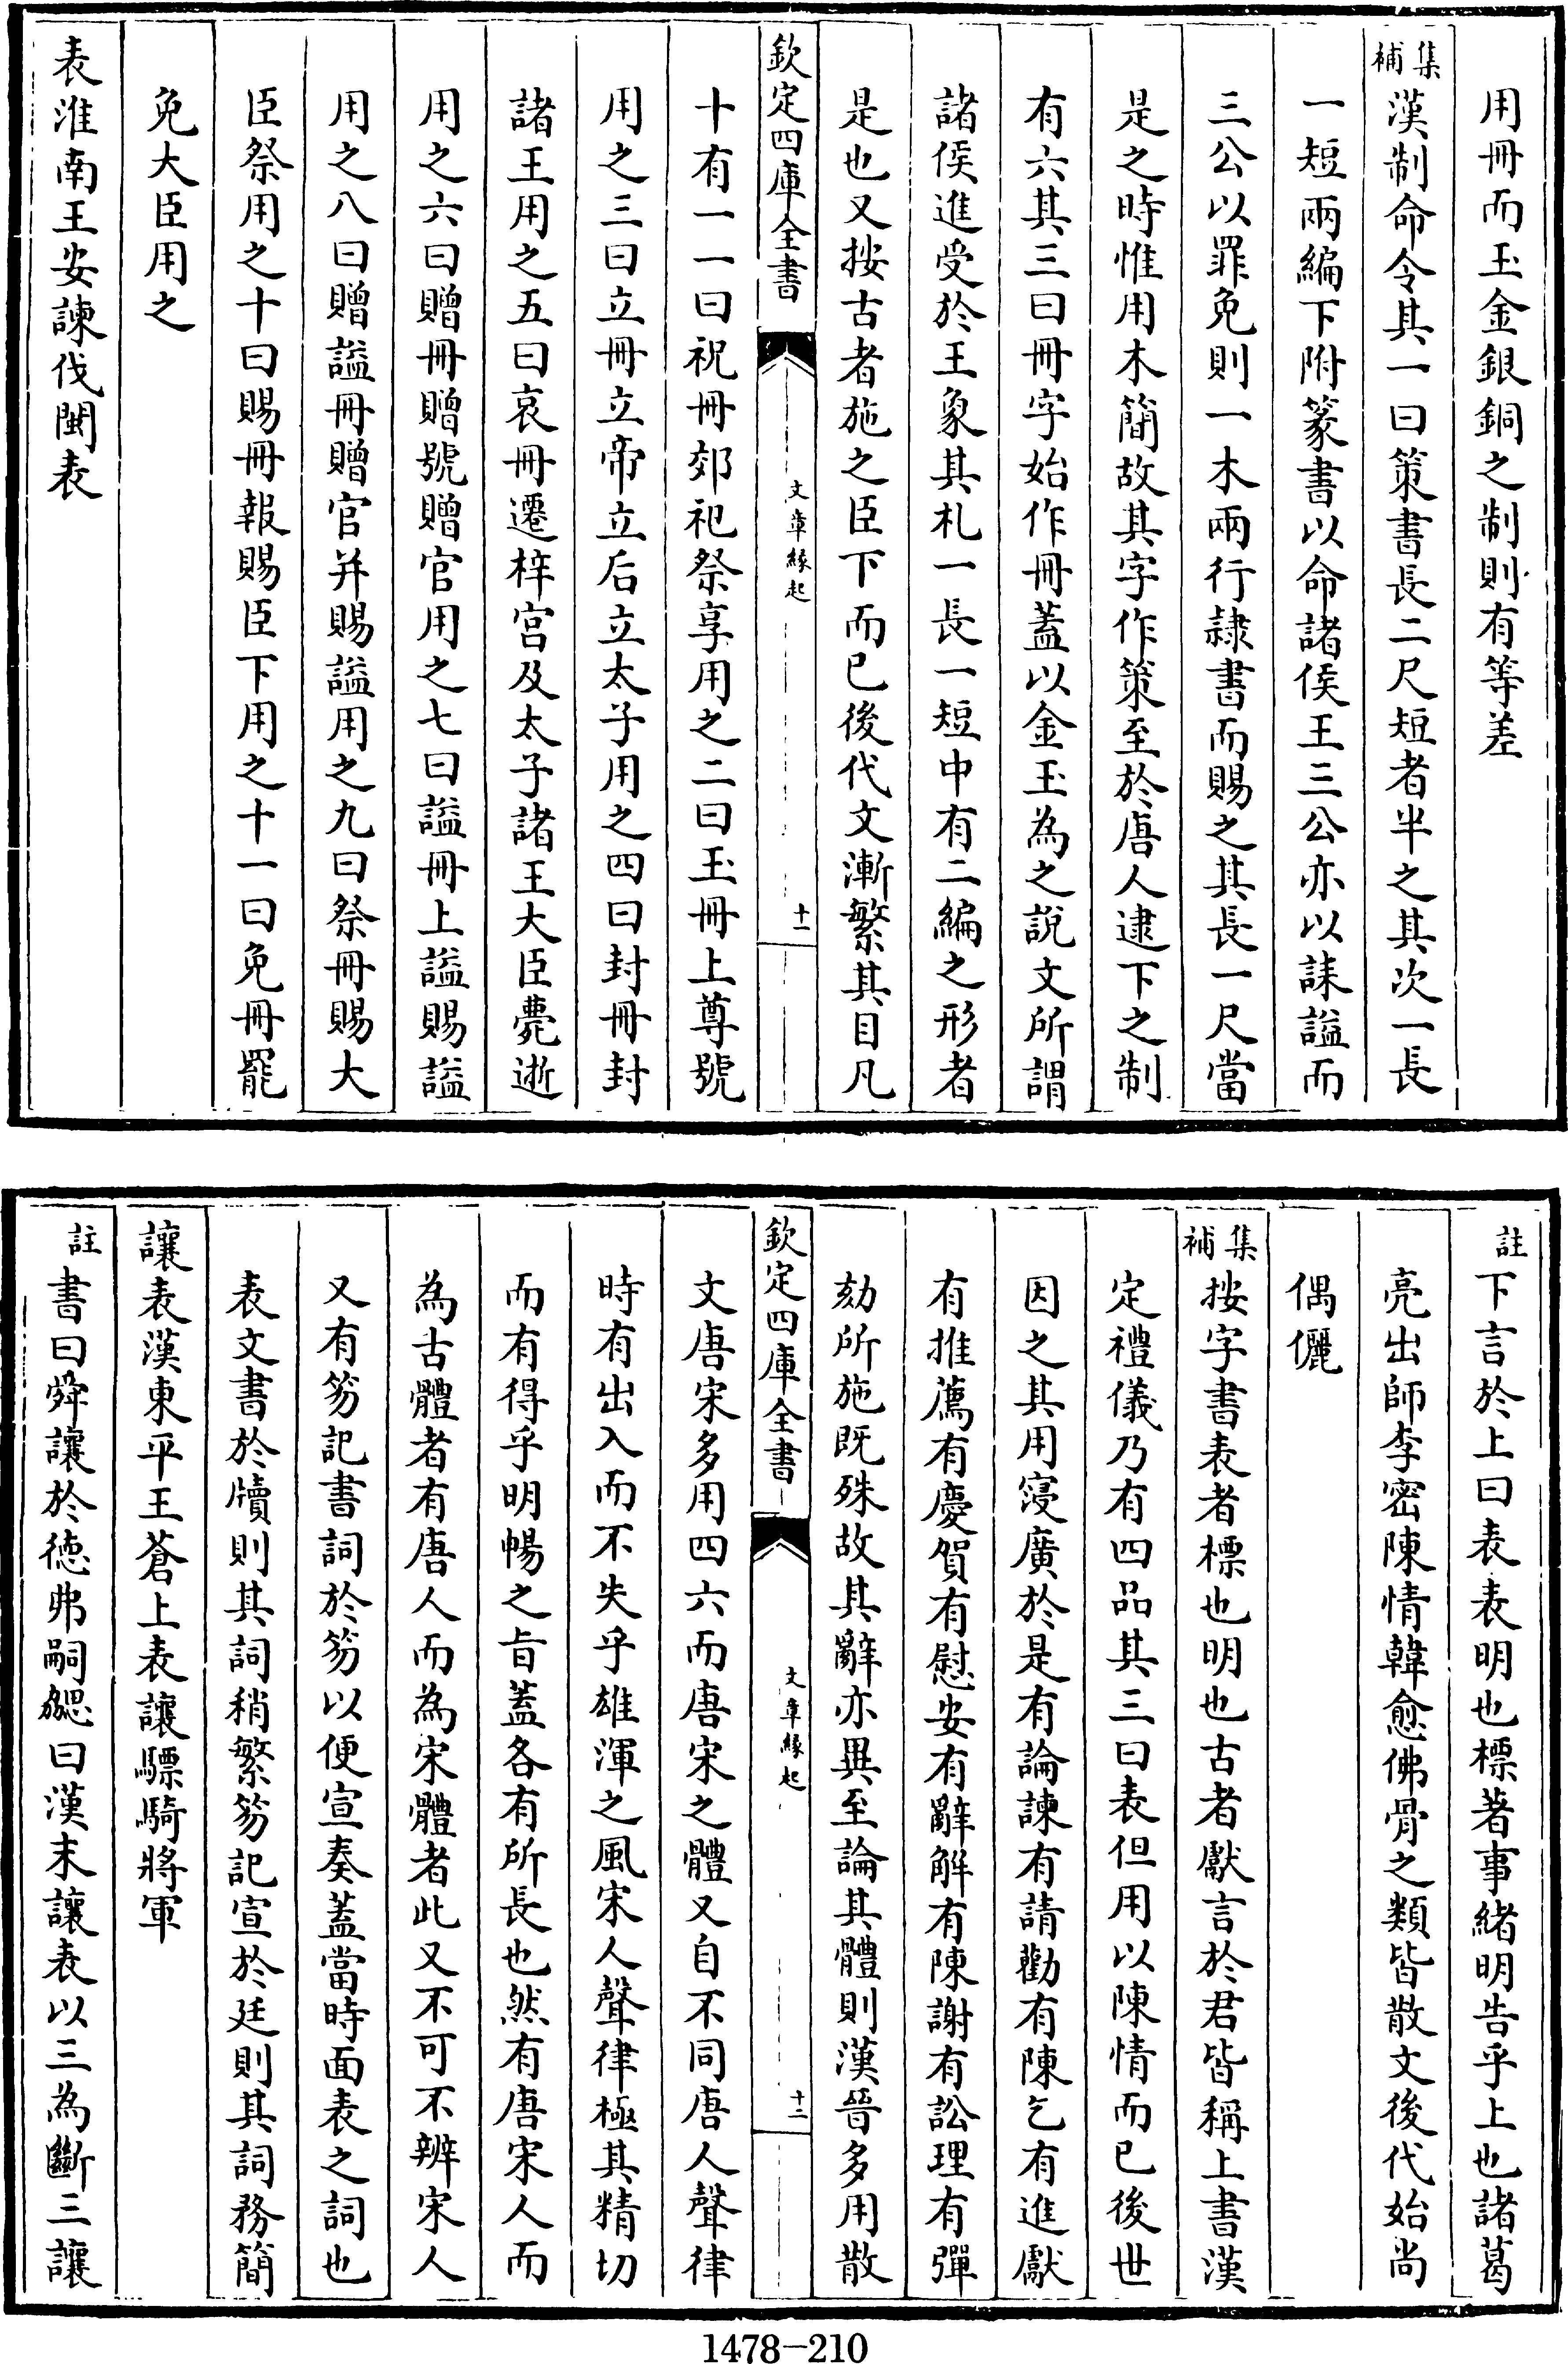 用冊而玉金銀銅之制則有等差
集補漢制命令其一曰策書長二尺短者半之其次一長
一短兩編下附篆書以命諸侯王三公亦以誄謚而
三公以罪免則一木兩行隷書而賜之其長一尺當
是之時惟用木簡故其字作策至於唐人逮下之制
有六其三曰冊字始作冊蓋以金玉為之說文所謂
諸侯進受於王象其札一長一短中有二編之形者
是也又按古者施之臣下而已後代文漸繁其目凡
欽定四庫全書
文章緣起
十一
十有一一曰祝冊郊祀祭享用之二曰玉冊上尊號
用之三曰立冊立帝立后立太子用之四曰封冊封
諸王用之五曰哀冊遷梓宮及太子諸王大臣薨逝
用之六曰贈冊贈號贈官用之七曰謚冊上謚賜謚
用之八曰贈謚冊贈官并賜謚用之九曰祭冊賜大
臣祭用之十曰賜冊報賜臣下用之十一曰免冊罷
免大臣用之
表淮南王安諫伐閩表
註下言於上曰表表明也標著事緒明告乎上也諸葛
亮出師李密陳情韓愈佛骨之類皆散文後代始尚
偶儷
集補按字書表者標也明也古者獻言於君皆稱上書漢
定禮儀乃有四品其三曰表但用以陳情而已後世
因之其用寖廣於是有論諫有請勸有陳乞有進獻
有推薦有慶賀有慰安有辭解有陳謝有訟理有彈
劾所施既殊故其辭亦異至論其體則漢晉多用散
欽定四庫全書
文章緣起
十二
文唐宋多用四六而唐宋之體又自不同唐人聲律
時有出入而不失乎雄渾之風宋人聲律極其精切
而有得乎明暢之旨蓋各有所長也然有唐宋人而
為古體者有唐人而為宋體者此又不可不辨宋人
又有笏記書詞於笏以便宣奏蓋當時面表之詞也
表文書於牘則其詞稍繁笏記宣於廷則其詞務簡
讓表漢東平王蒼上表讓驃騎將軍
註書曰舜讓於德弗嗣勰曰漢末讓表以三為斷三讓
1478-210